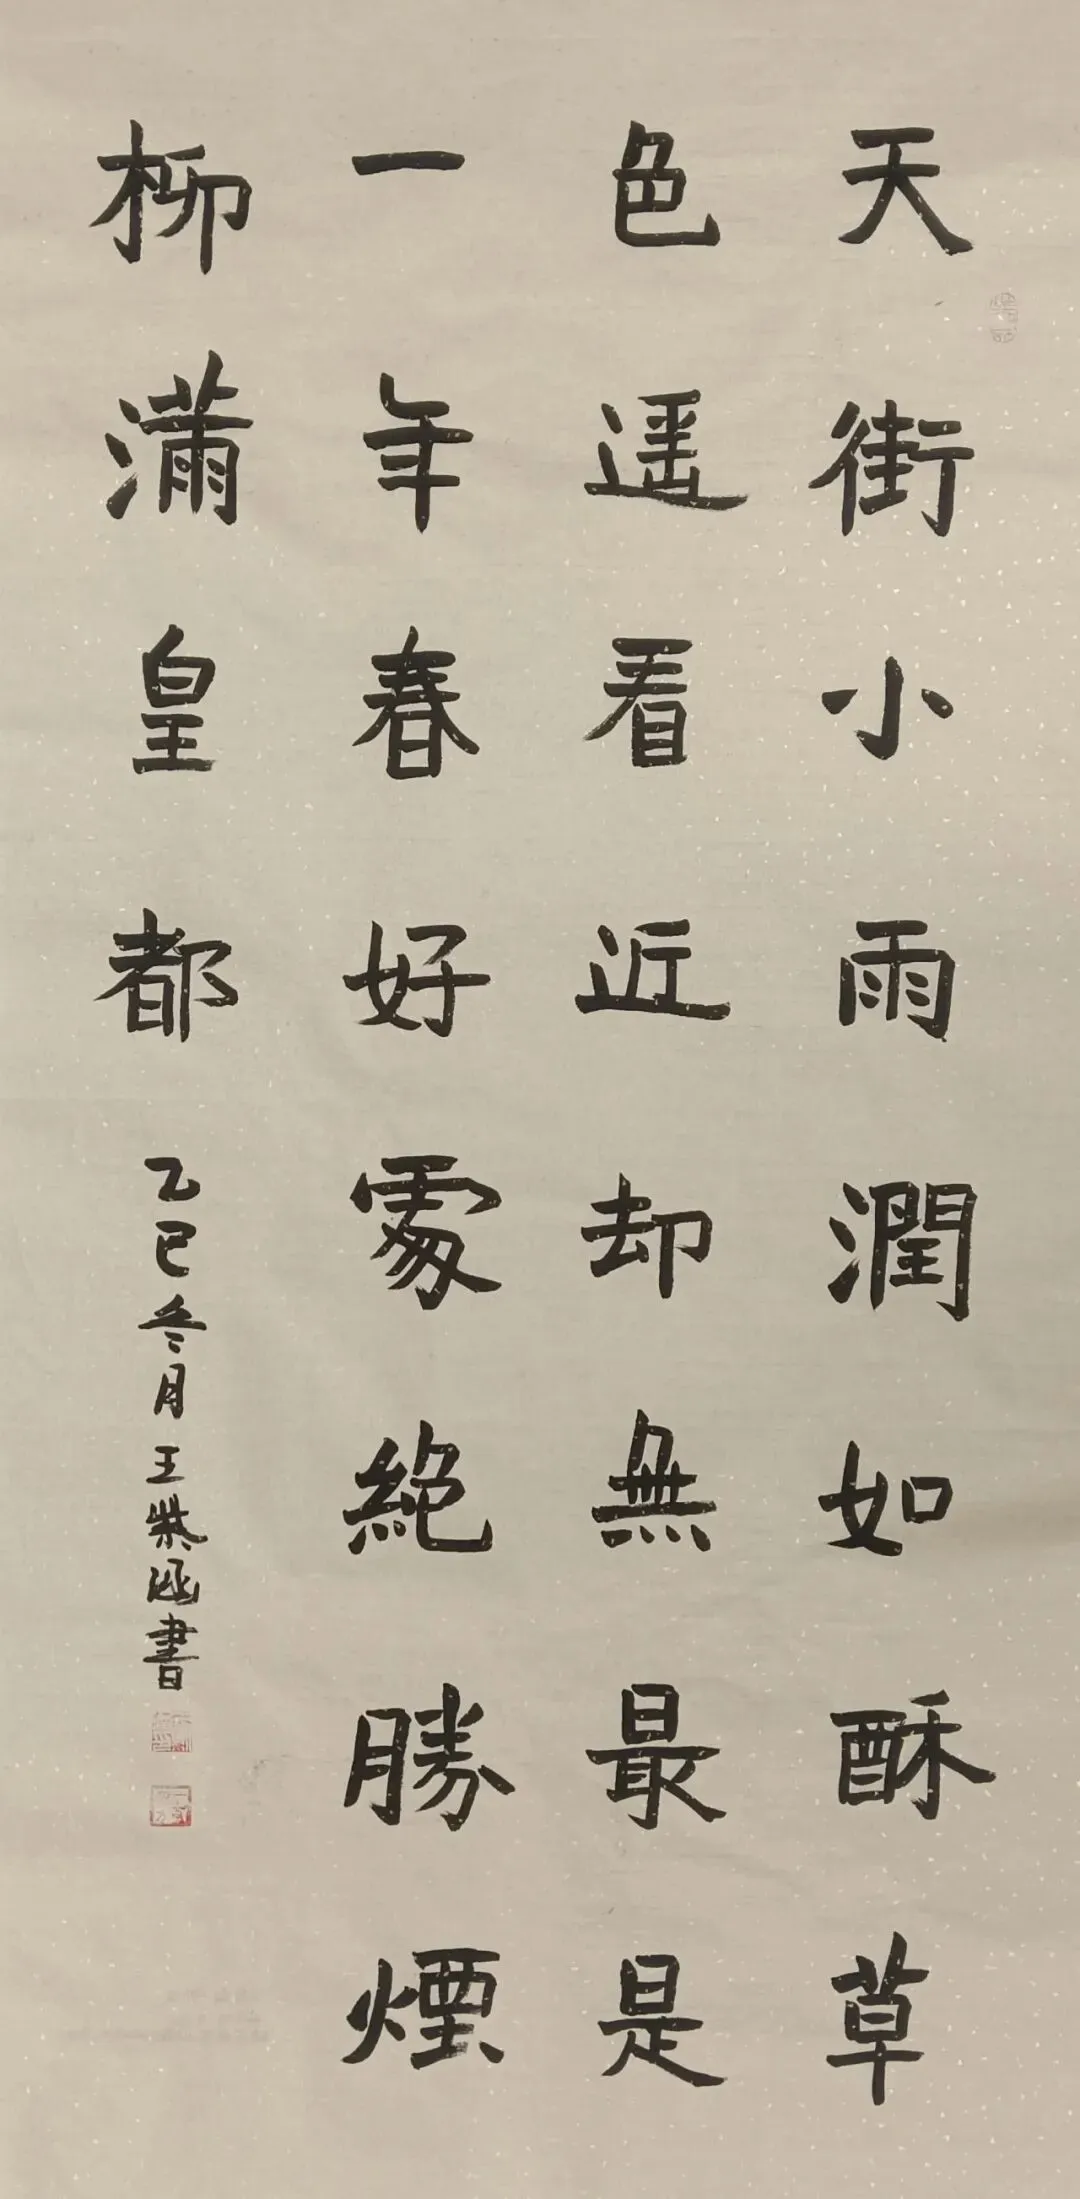 天街小雨潤如酥草
色遥看近却無最是
一年春好處絕勝煙
柳滿皇都
乙巳冬月王紫涵書